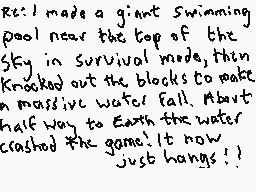 Re: I made a giant swimming
pool near the top of the
sky in survival mode, then
knocked out the blocks to make
a massive water fall. About
half way to Earth the water
crashed the game! It now
just hangs!!